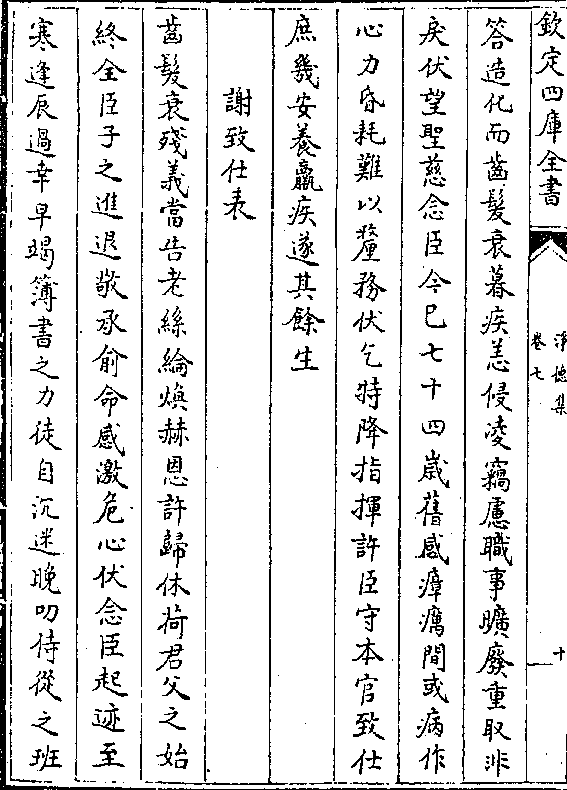 答造化而齒髮衰暮疾恙侵凌竊慮職事曠廢重取非
戾伏望聖慈念臣今已七十四歲舊感瘴癘間或病作
心力昏耗難以釐務伏乞特降指揮許臣守本官致仕
庶幾安養羸疾遂其餘生
謝致仕表
齒髮衰殘義當告老絲綸煥赫恩許歸休荷君父之始
終全臣子之進退敬承俞命感激危心伏念臣起迹至
寒逢辰過幸早竭簿書之力徒自沉迷晚叨侍從之班
欽定四庫全書
淨德集
卷七
十